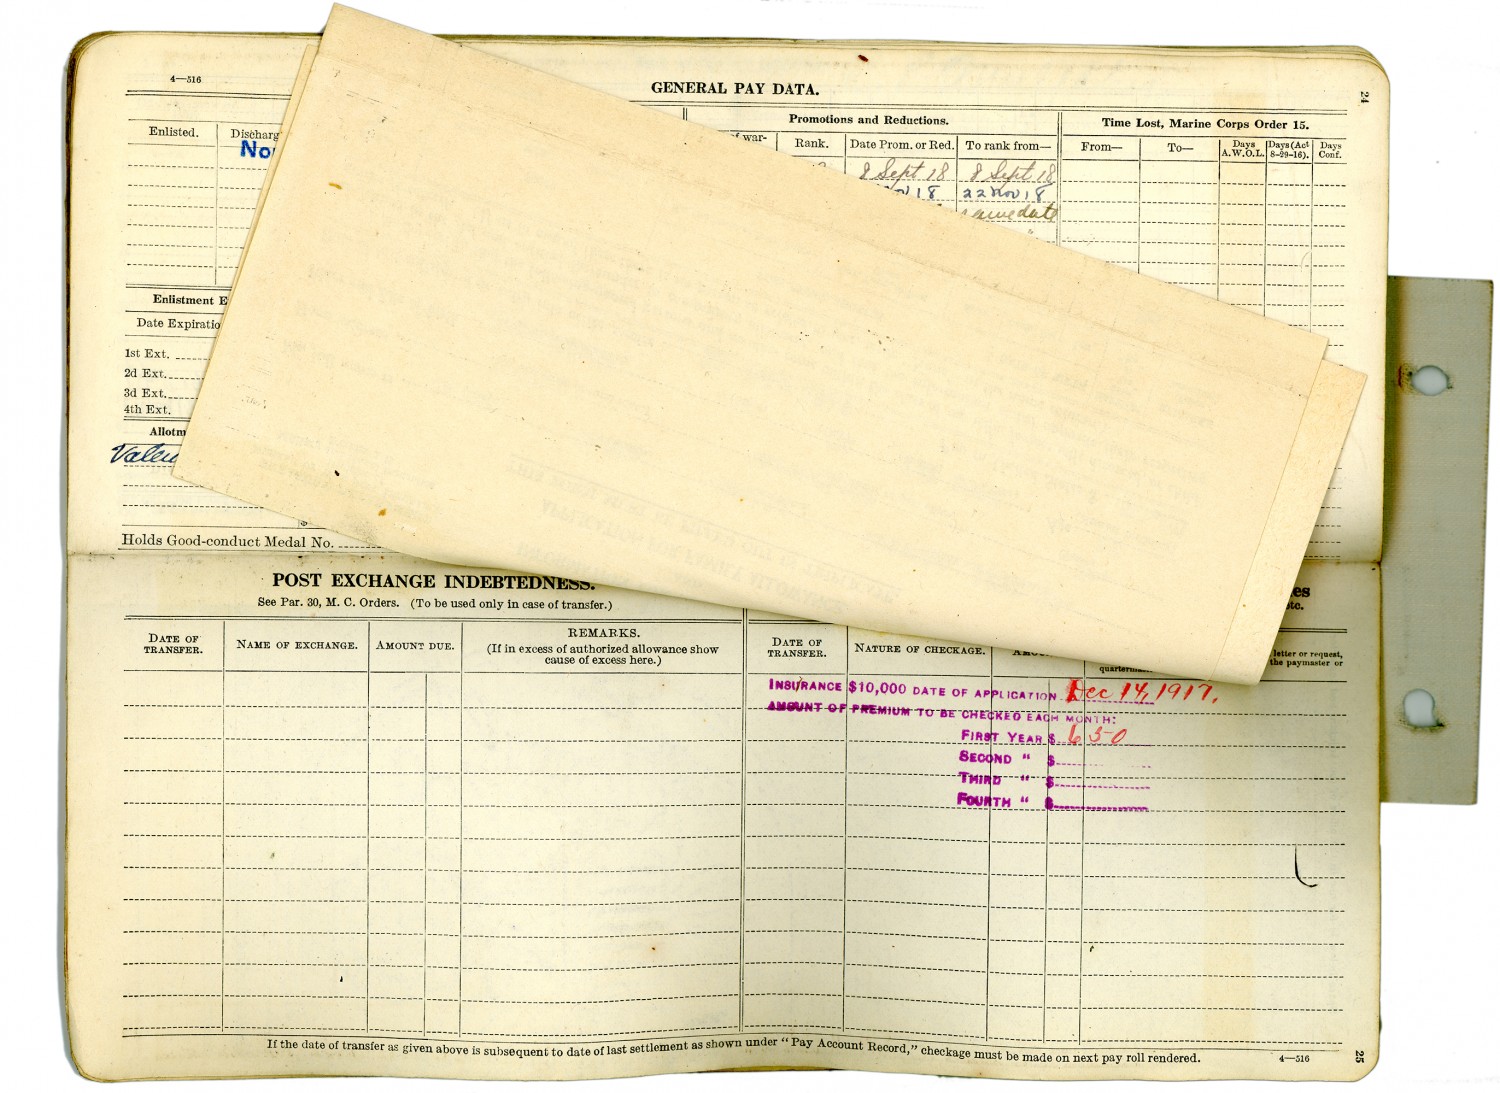 4—516
GENERAL PAY DATA.
24
Promotions and Reductions.
Time Lost, Marine Corps Order 15.
Enlisted.
Rank.
Date Prom. or Red.
To rank from—
From—
To—
Days A.W.O.L.
Days (Act 8-29-16).
Days Conf.
8 Sept 18
8 Sept 18
18
22 Nov 18
same date
Enlistment
Date
1st Ext.
2d Ext.
3d Ext.
4th Ext.
$
Holds Good-conduct Medal No.
POST EXCHANGE INDEBTEDNESS.
See Par. 30, M. C. Orders. (To be used only in case of transfer.)
DATE OF TRANSFER.
NAME OF EXCHANGE.
AMOUNT DUE.
REMARKS.
(If in excess of authorized allowance show
cause of excess here.)
DATE OF TRANSFER.
NATURE OF CHECKAGE.
letter or request,
the paymaster or
INSURANCE $10,000 DATE OF APPLICATION Dec 14, 1917.
AMOUNT OF PREMIUM TO BE CHECKED EACH MONTH:
FIRST YEAR $ 6 50
SECOND " $
THIRD " $
FOURTH " $
If the date of transfer as given above is subsequent to date of last settlement as shown under "Pay Account Record," checkage must be made on next pay roll rendered.
4—516
25